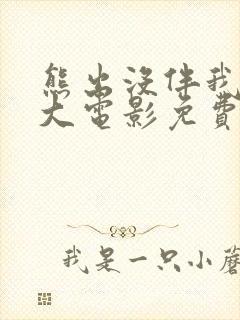 熊出没伴我
大电影免費
我是一只小蘑